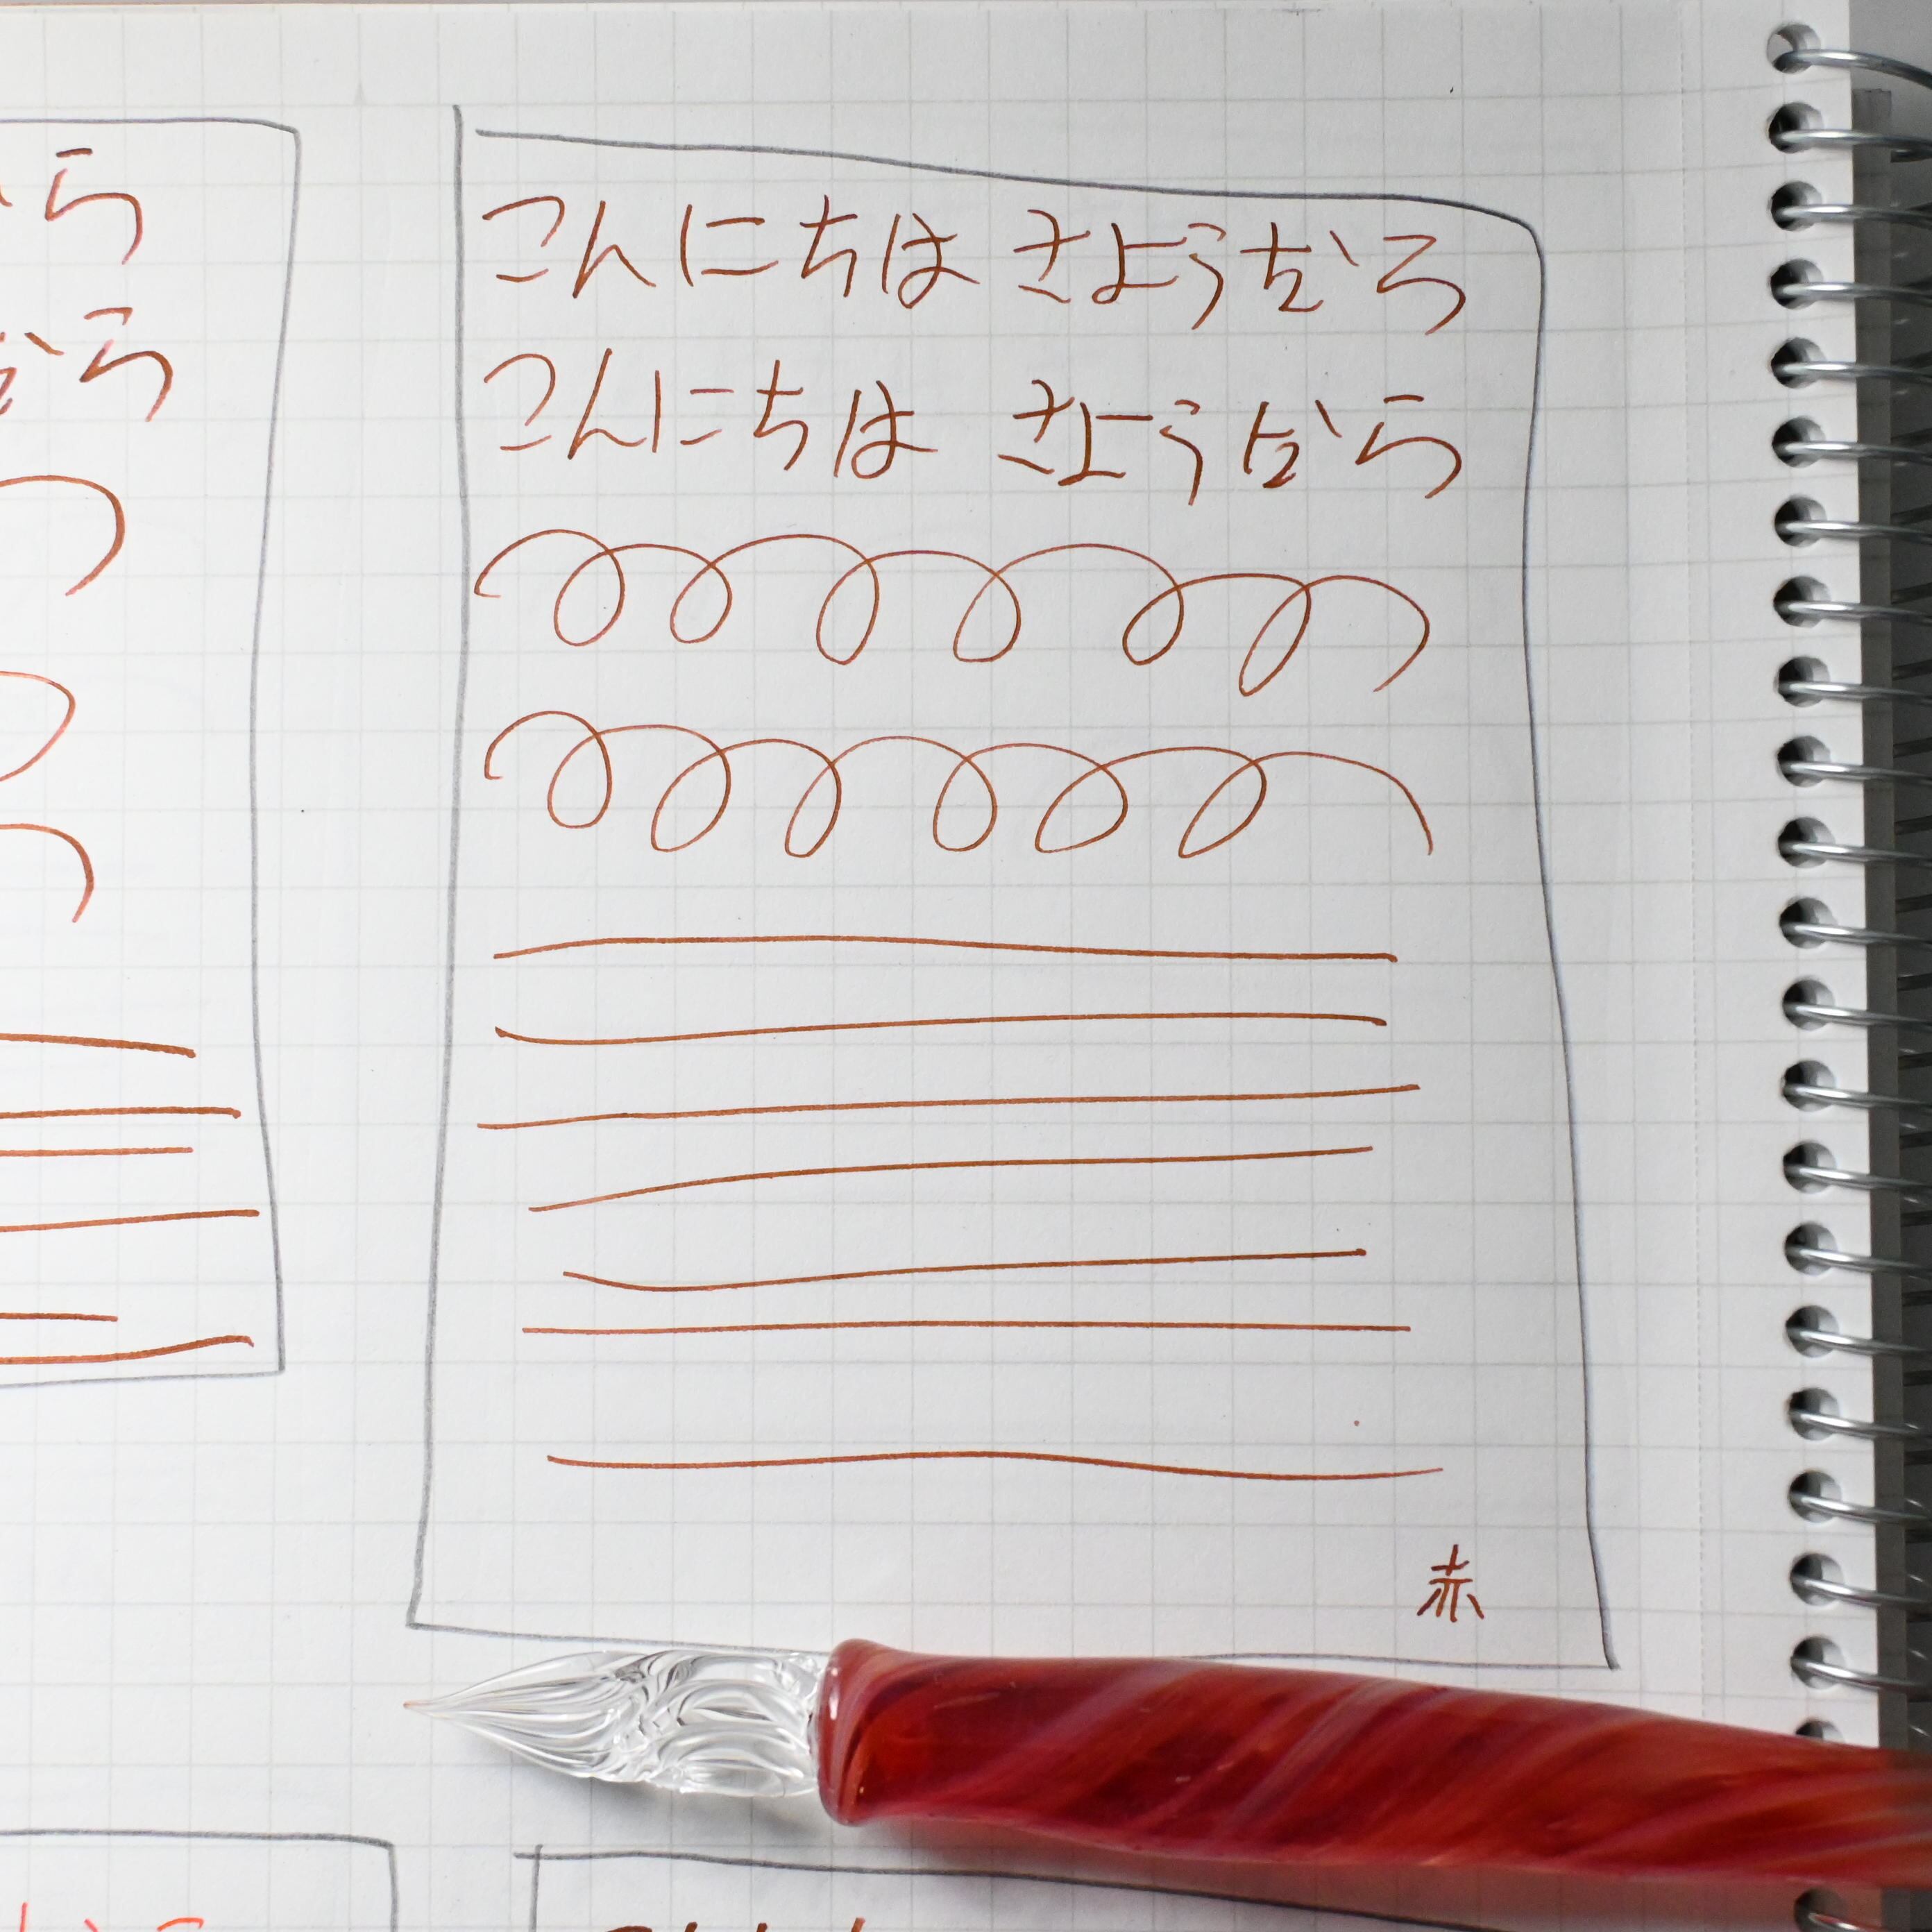 こんにちは さようなら
こんにちは さようなら
赤
ら
ら